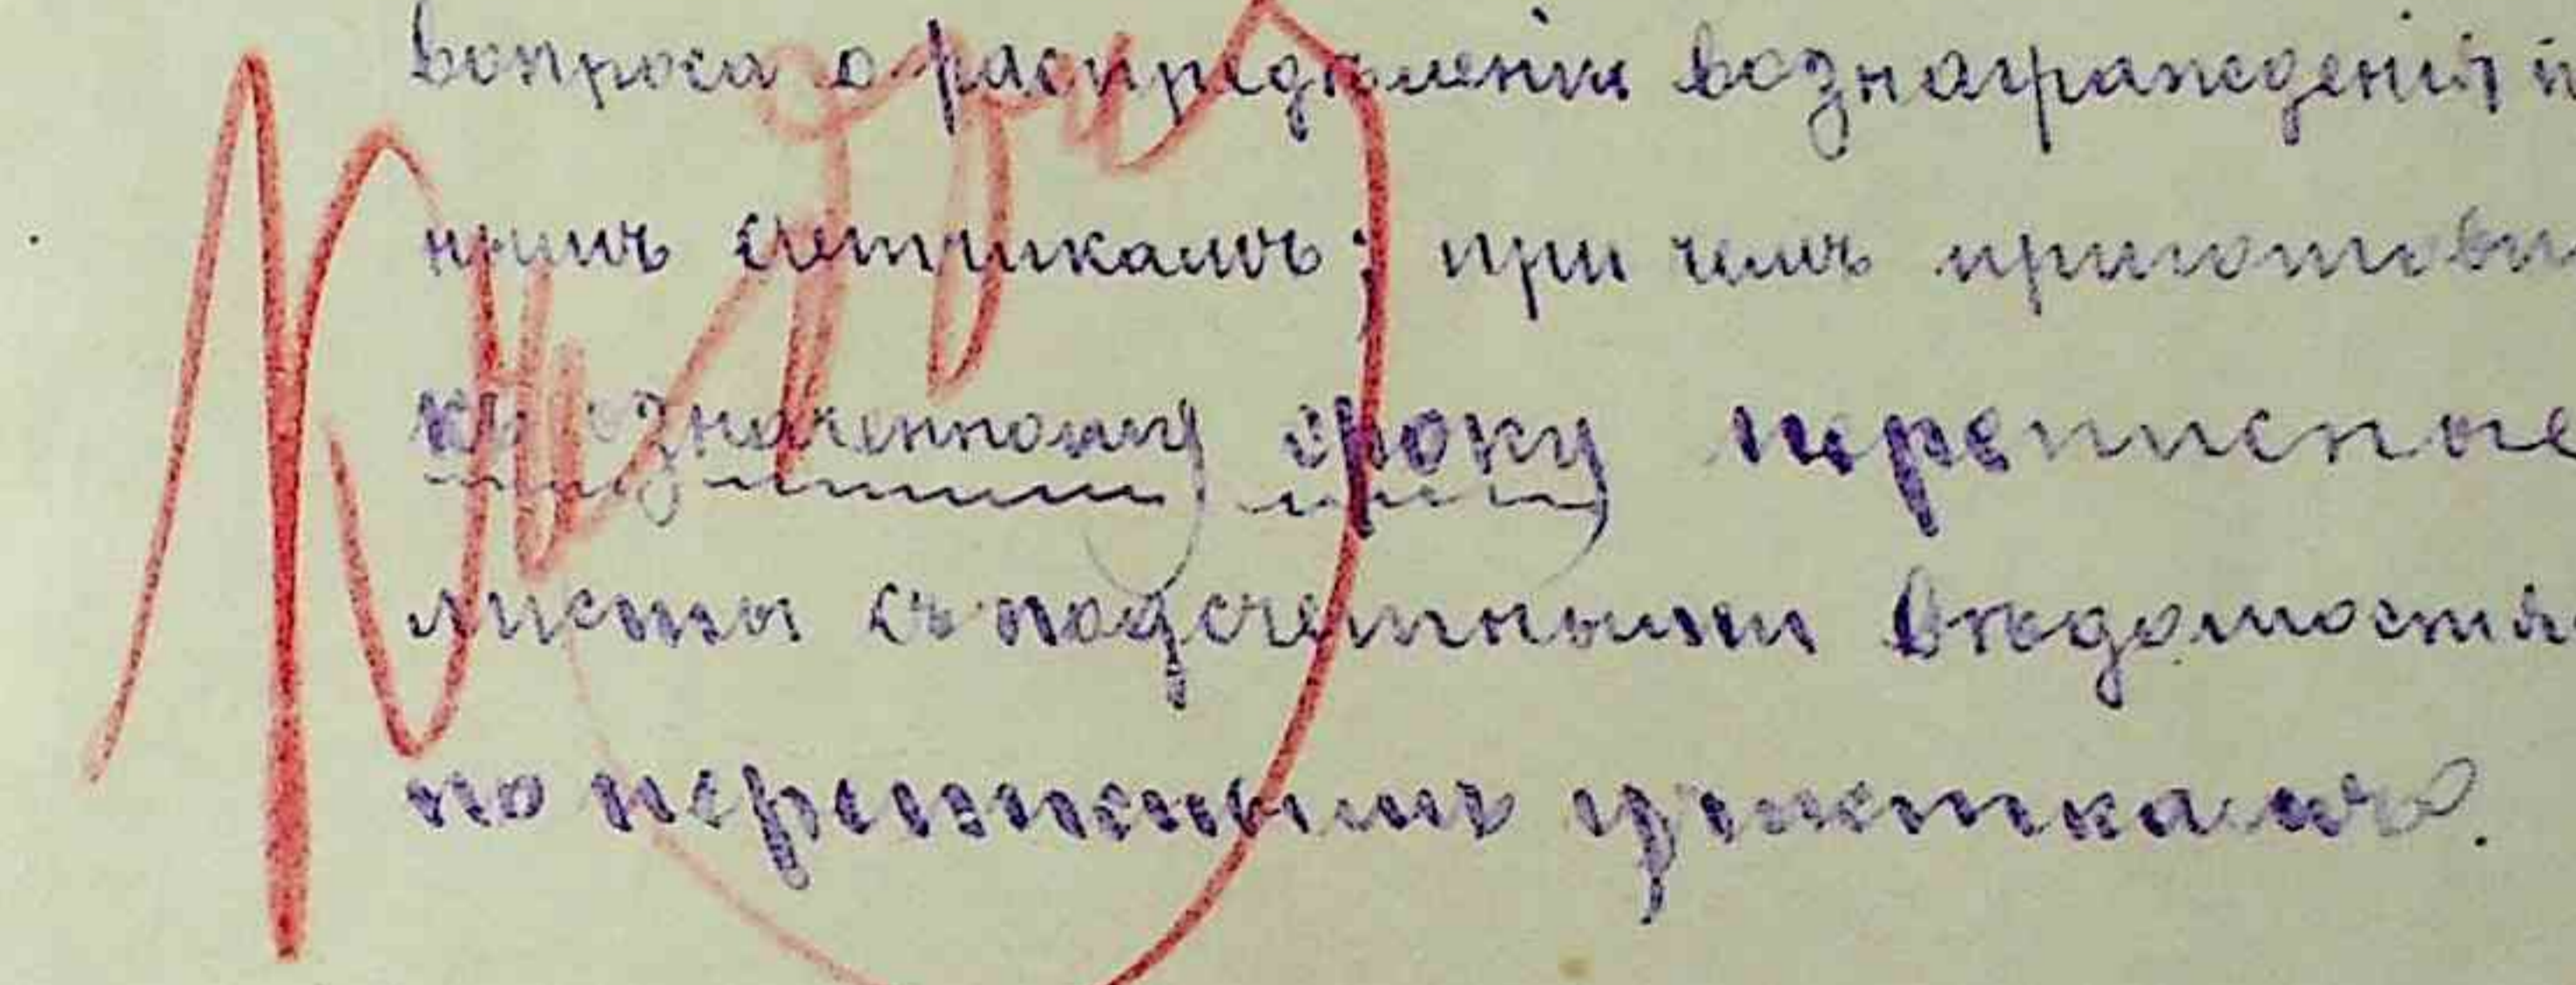 вопроса о распредѣленіи вознагражденія п
нымъ счетчикамъ; при чемъ приготови
къ назначенному сроку переписные
листы съ подсчетными вѣдомостя
по переписнымъ участкамъ.